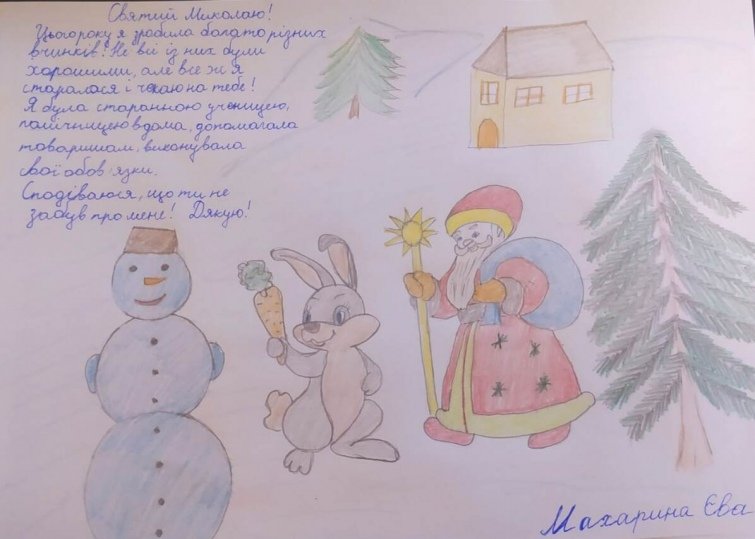 Святий Миколаю!
Цього року я зробила багато різних
вчинків! Не всі із них були
хорошими, але все ж я
старалася і чекаю на тебе!
Я була старанною ученицею,
помічницею вдома, допомагала
товаришам, виконувала
свої обов'язки.
Сподіваюся, що ти не
забув про мене! Дякую!
Махарина Єва